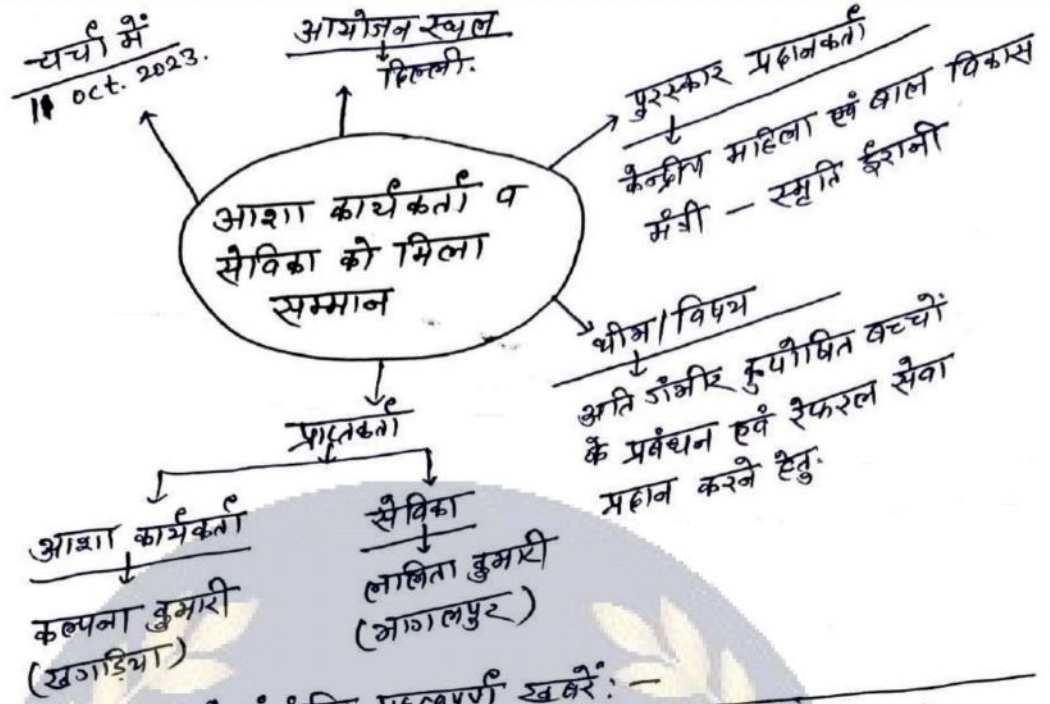 चर्चा में
11 oct. 2023.
आयोजन स्थल
दिल्ली.
पुरस्कार प्रदानकर्ता
केन्द्रीय महिला एवं बाल विकास
मंत्री - स्मृति ईरानी
आशा कार्यकर्ता व
सेविका को मिला
सम्मान
थीम/विषय
अति गंभीर कुपोषित बच्चों
के प्रबंधन एवं रेफरल सेवा
प्रदान करने हेतु.
प्राप्तकर्ता
आशा कार्यकर्ता
कल्पना कुमारी
(खगड़िया)
सेविका
ललिता कुमारी
(भागलपुर)
महत्वपूर्ण खबरें: -